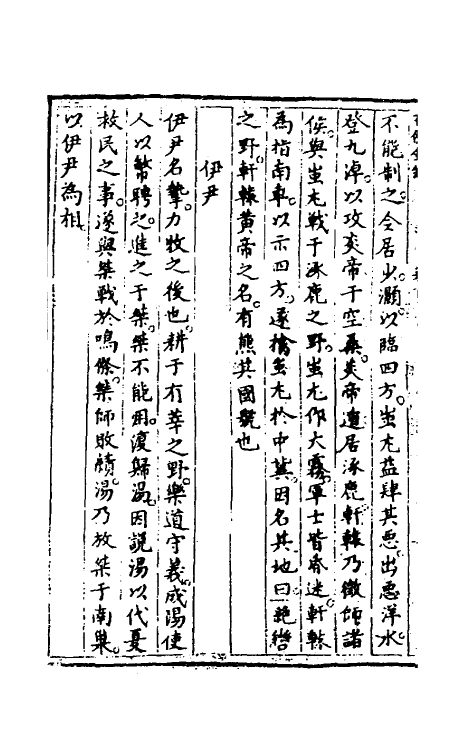 不能制之令居少灝以臨四方蚩尤益肆其惡出惡洋水
登九淖以攻炎帝于空桑炎帝遣居涿鹿軒轅乃徵師諸
侯與蚩尤戰于涿鹿之野蚩尤作大霧軍士皆昏迷軒轅
為指南車以示四方遂擒蚩尤於中冀因名其地曰絶轡
之野軒轅黄帝之名有熊其國號也
伊尹
伊尹名摯力牧之後也耕于有莘之野樂道守義成湯使
人以幣聘之進之于桀桀不能用復歸湯因說湯以伐夏
救民之事遂與桀戰於鳴條桀師敗績湯乃放桀于南巢
以伊尹為相